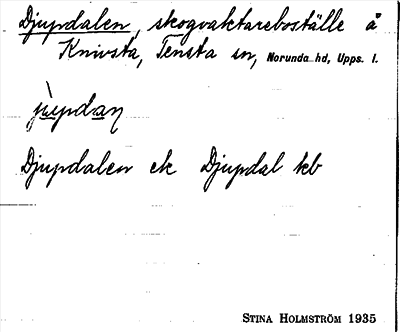 Djupdalen, skogvaktareboställe å
Knivsta, Tensta sn, Norunda hd, Upps. l.
jùpdaņ
Djupdalen ek Djupdal kb
STINA HOLMSTRÖM 1935